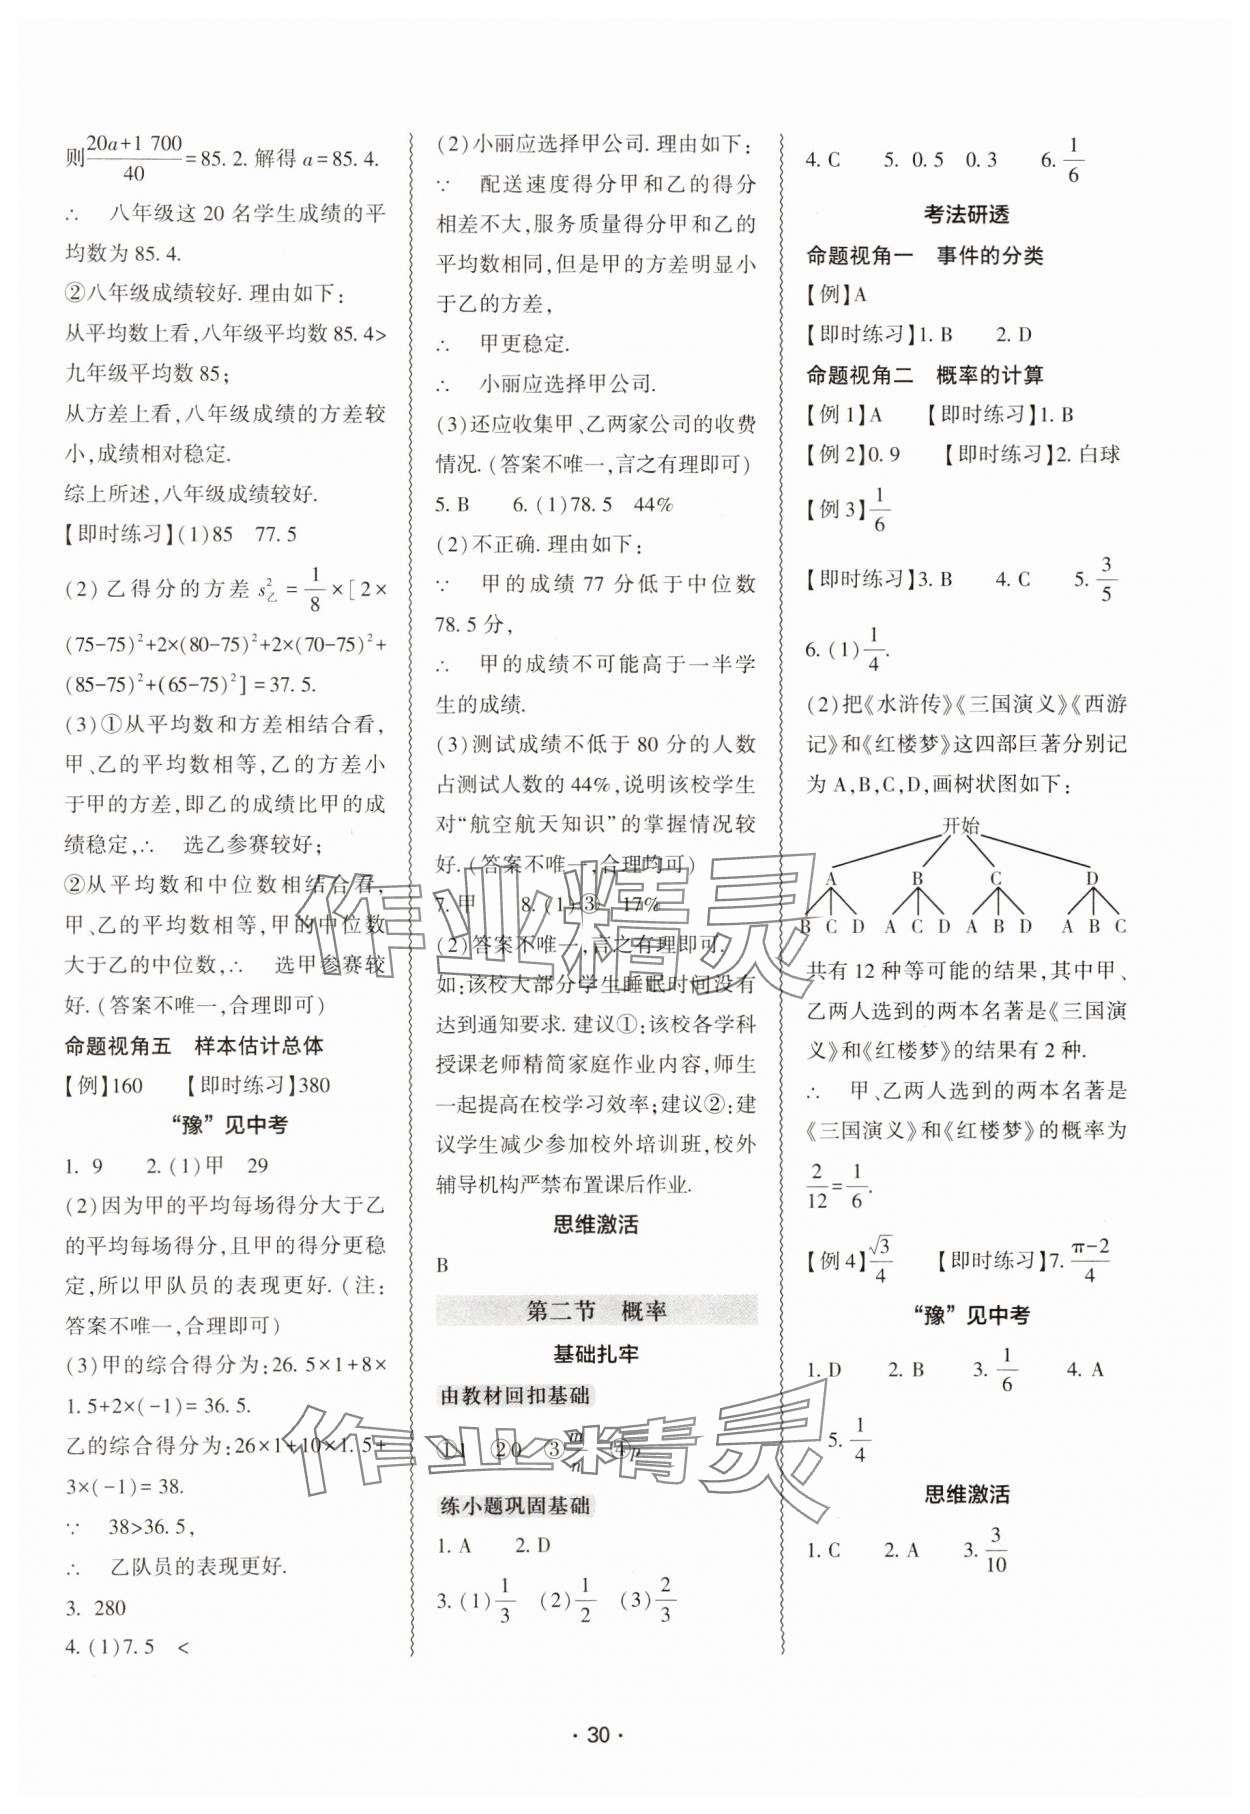 则$\frac{20a+1 700}{40}$=85. 2. 解得 a=85. 4.
∴ 八年级这 20 名学生成绩的平
均数为 85. 4.
②八年级成绩较好. 理由如下：
从平均数上看,八年级平均数 85. 4>
九年级平均数 85；
从方差上看,八年级成绩的方差较
小,成绩相对稳定.
综上所述,八年级成绩较好.
【即时练习】(1)85 77. 5
(2) 乙得分的方差 $s_乙^2$ = $\frac{1}{8}$ ×[ 2×
(75-75)²+2×(80-75)²+2×(70-75)²+
(85-75)²+(65-75)²]=37. 5.
(3)①从平均数和方差相结合看,
甲、乙的平均数相等,乙的方差小
于甲的方差,即乙的成绩比甲的成
绩稳定,∴ 选乙参赛较好；
②从平均数和中位数相结合看,
甲、乙的平均数相等,甲的中位数
大于乙的中位数,∴ 选甲参赛较
好. (答案不唯一,合理即可)
命题视角五 样本估计总体
【例】160 【即时练习】380
“豫”见中考
1. 9 2. (1)甲 29
(2)因为甲的平均每场得分大于乙
的平均每场得分,且甲的得分更稳
定,所以甲队员的表现更好. (注：
答案不唯一,合理即可)
(3)甲的综合得分为：26. 5×1+8×
1. 5+2×(-1)=36. 5.
乙的综合得分为：26×1+10×1. 5+
3×(-1)=38.
∵ 38>36. 5,
∴ 乙队员的表现更好.
3. 280
4. (1)7. 5 <
(2)小丽应选择甲公司. 理由如下：
∵ 配送速度得分甲和乙的得分
相差不大,服务质量得分甲和乙的
平均数相同,但是甲的方差明显小
于乙的方差,
∴ 甲更稳定.
∴ 小丽应选择甲公司.
(3)还应收集甲、乙两家公司的收费
情况. (答案不唯一,言之有理即可)
5. B 6. (1)78. 5 44%
(2)不正确. 理由如下：
∵ 甲的成绩 77 分低于中位数
78. 5 分,
∴ 甲的成绩不可能高于一半学
生的成绩.
(3)测试成绩不低于 80 分的人数
占测试人数的 44%,说明该校学生
对“航空航天知识”的掌握情况较
好. (答案不唯一,合理均可)
7. 甲 8. (1)③ 17%
(2)答案不唯一,言之有理即可.
如：该校大部分学生睡眠时间没有
达到通知要求. 建议①：该校各学科
授课老师精简家庭作业内容,师生
一起提高在校学习效率；建议②：建
议学生减少参加校外培训班,校外
辅导机构严禁布置课后作业.
思维激活
B
第二节 概率
基础扎牢
由教材回扣基础
①1 ②0 ③$\frac{m}{n}$ ④p
练小题巩固基础
1. A 2. D
3. (1)$\frac{1}{3}$ (2)$\frac{1}{2}$ (3)$\frac{2}{3}$
4. C 5. 0. 5 0. 3 6. $\frac{1}{6}$
考法研透
命题视角一 事件的分类
【例】A
【即时练习】1. B 2. D
命题视角二 概率的计算
【例 1】A 【即时练习】1. B
【例 2】0. 9 【即时练习】2. 白球
【例 3】$\frac{1}{6}$
【即时练习】3. B 4. C 5. $\frac{3}{5}$
6. (1)$\frac{1}{4}$.
(2)把《水浒传》《三国演义》《西游
记》和《红楼梦》这四部巨著分别记
为 A,B,C,D,画树状图如下：
开始
A B C D
B C D A C D A B D A B C
共有 12 种等可能的结果,其中甲、
乙两人选到的两本名著是《三国演
义》和《红楼梦》的结果有 2 种.
∴ 甲、乙两人选到的两本名著是
《三国演义》和《红楼梦》的概率为
$\frac{2}{12}$=$\frac{1}{6}$.
【例 4】$\frac{\sqrt{3}}{4}$ 【即时练习】7. $\frac{π-2}{4}$
“豫”见中考
1. D 2. B 3. $\frac{1}{6}$ 4. A
5. $\frac{1}{4}$
思维激活
1. C 2. A 3. $\frac{3}{10}$
· 30 ·
作业精灵
作业精灵